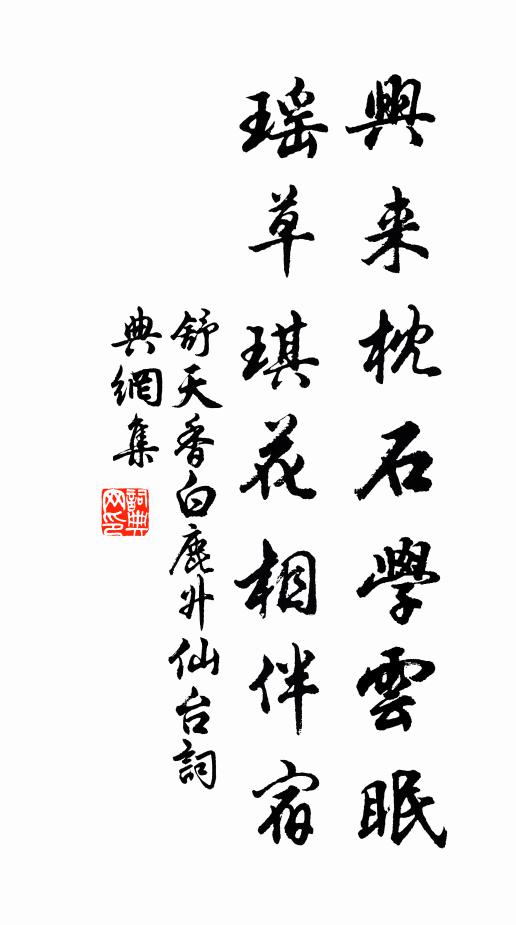 興来枕石學雲眠
瑶草琪花相伴宿
舒天香白鹿升仙台詞
典網集
詞典网印